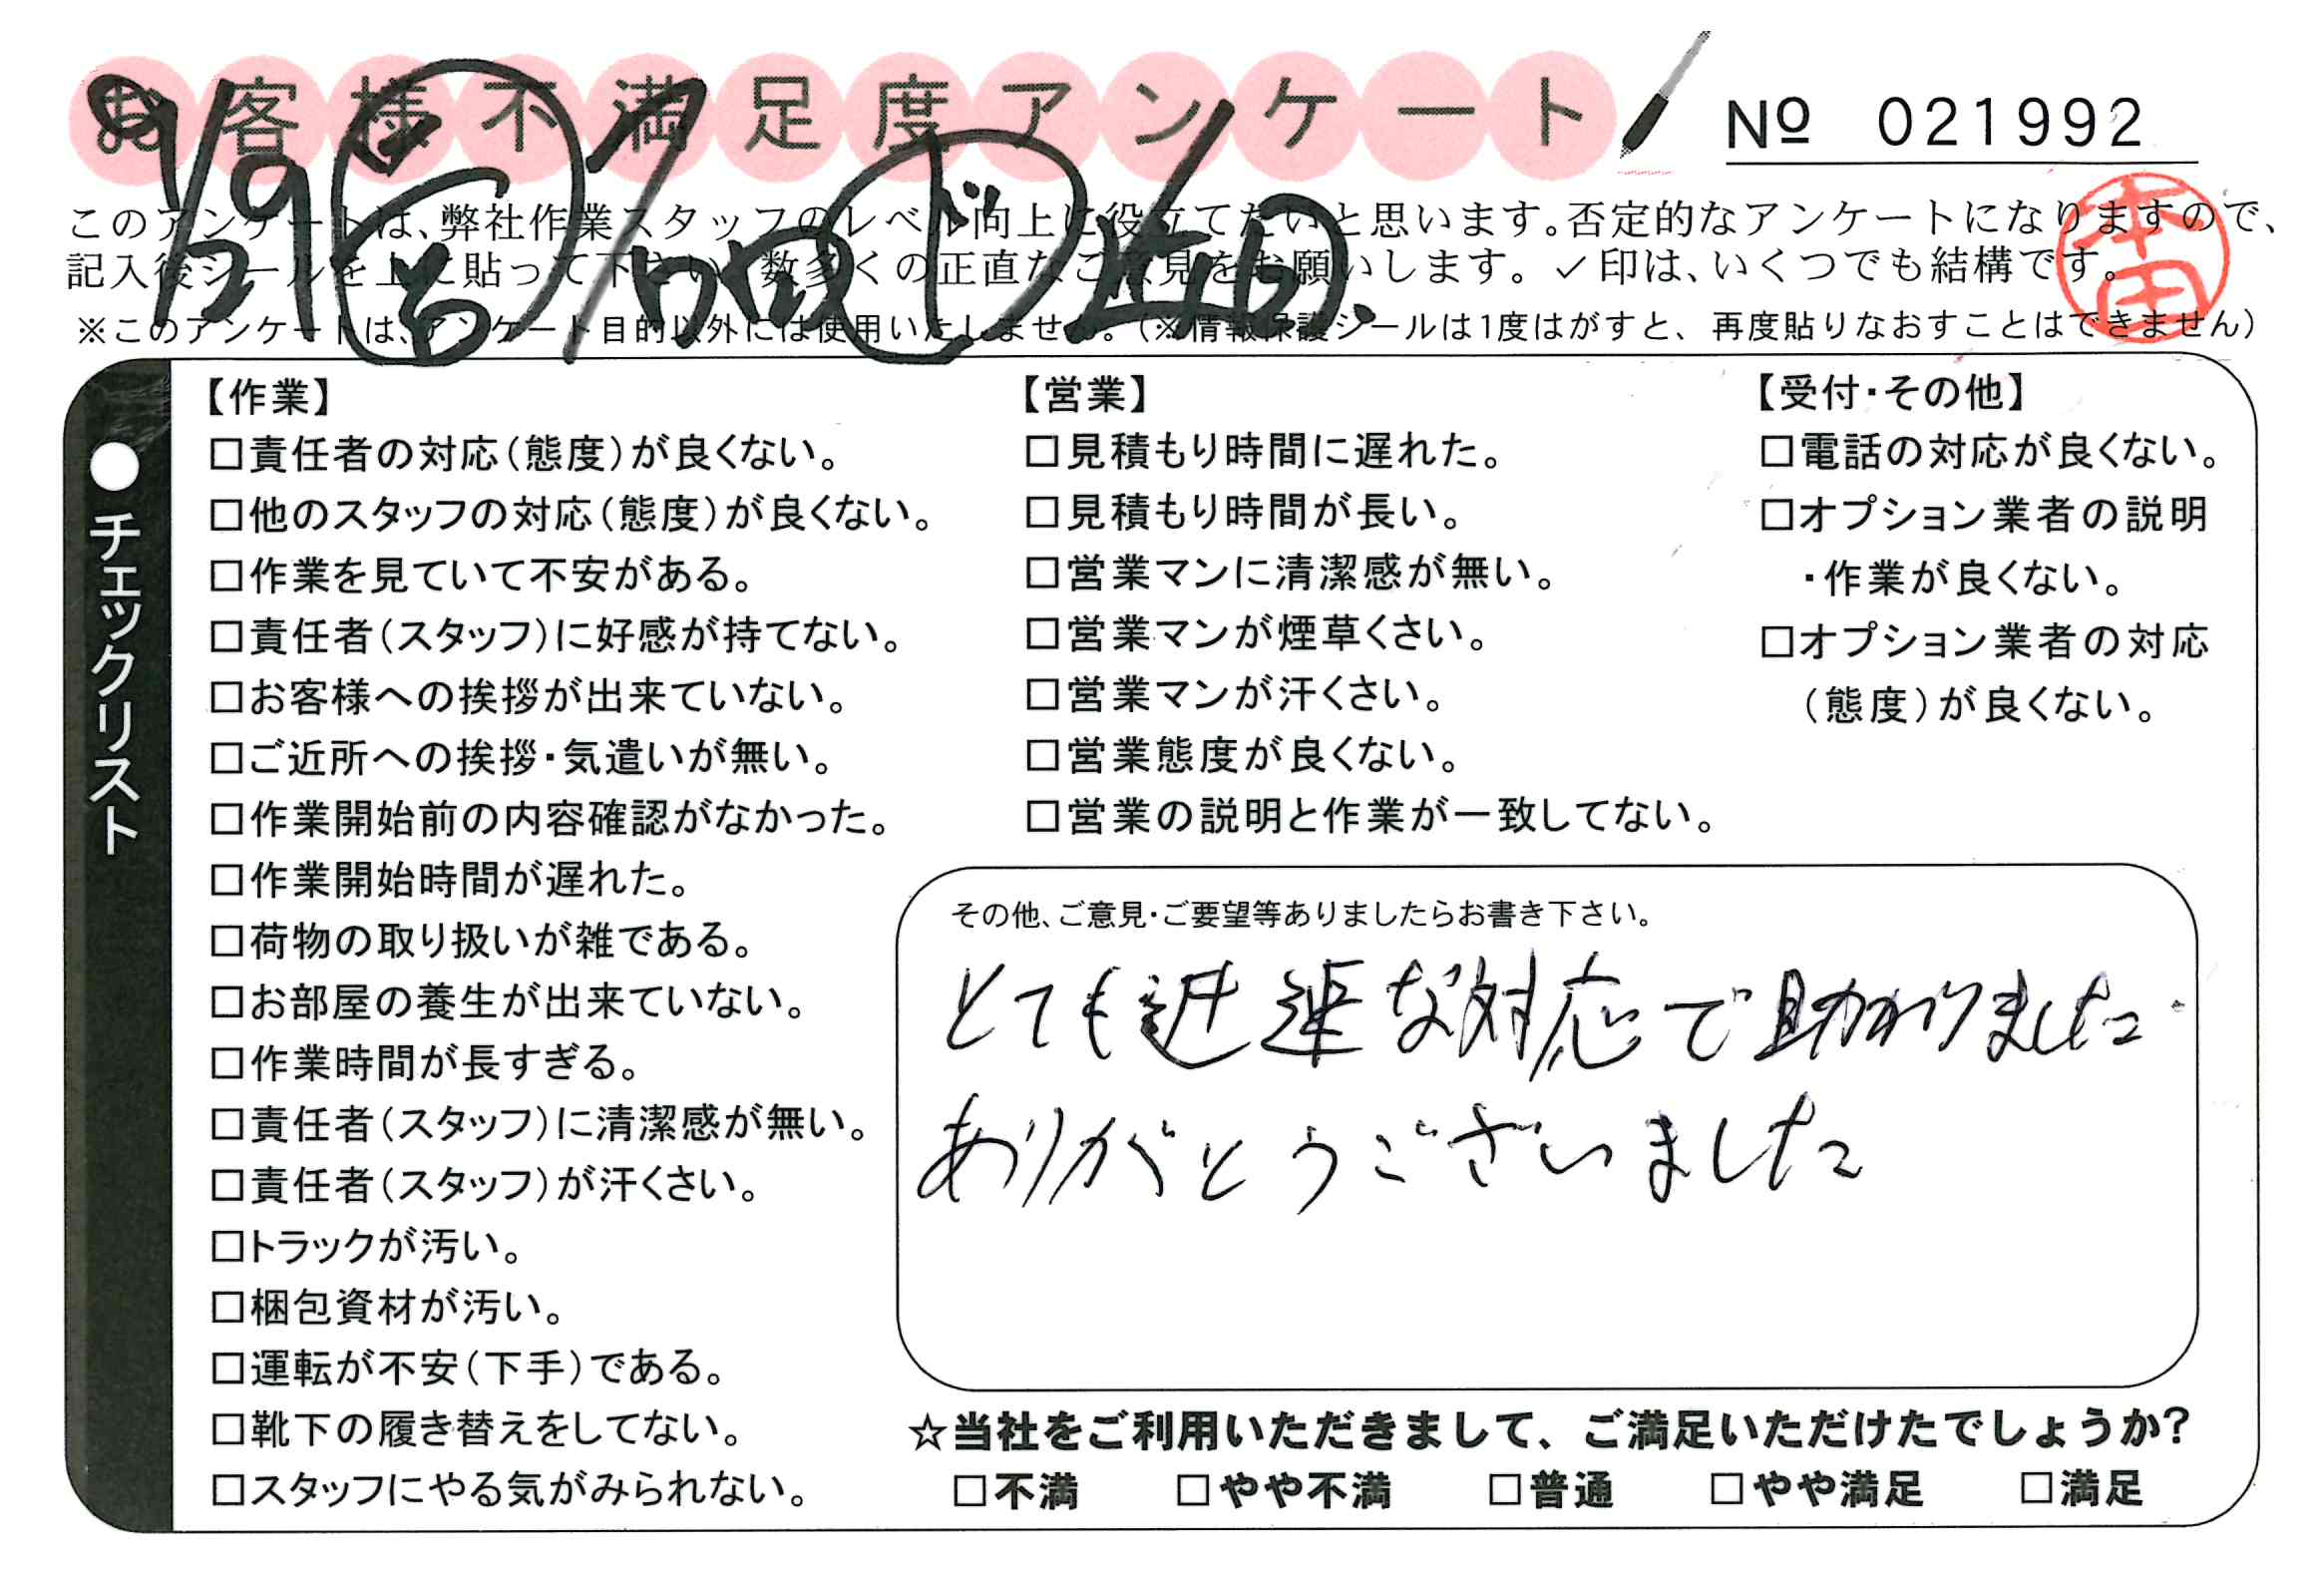 お客様不満足度アンケート
№ 021992
このアンケートは、弊社作業スタッフのレベル向上に役立てたいと思います。否定的なアンケートになりますので、
記入後シールを上に貼って下さい。数多くの正直なご意見をお願いします。✓印は、いくつでも結構です。
※このアンケートは、アンケート目的以外には使用いたしません。（※情報保護シールは1度はがすと、再度貼りなおすことはできません）
9/29
本田
●チェックリスト
【作業】
□責任者の対応（態度）が良くない。
□他のスタッフの対応（態度）が良くない。
□作業を見ていて不安がある。
□責任者（スタッフ）に好感が持てない。
□お客様への挨拶が出来ていない。
□ご近所への挨拶・気遣いが無い。
□作業開始前の内容確認がなかった。
□作業開始時間が遅れた。
□荷物の取り扱いが雑である。
□お部屋の養生が出来ていない。
□作業時間が長すぎる。
□責任者（スタッフ）に清潔感が無い。
□責任者（スタッフ）が汗くさい。
□トラックが汚い。
□梱包資材が汚い。
□運転が不安（下手）である。
□靴下の履き替えをしてない。
□スタッフにやる気がみられない。
【営業】
□見積もり時間に遅れた。
□見積もり時間が長い。
□営業マンに清潔感が無い。
□営業マンが煙草くさい。
□営業マンが汗くさい。
□営業態度が良くない。
□営業の説明と作業が一致してない。
【受付・その他】
□電話の対応が良くない。
□オプション業者の説明
・作業が良くない。
□オプション業者の対応
（態度）が良くない。
その他、ご意見・ご要望等ありましたらお書き下さい。
とても迅速な対応で助かりました
ありがとうございました
☆当社をご利用いただきまして、ご満足いただけたでしょうか？
□不満 □やや不満 □普通 □やや満足 □満足